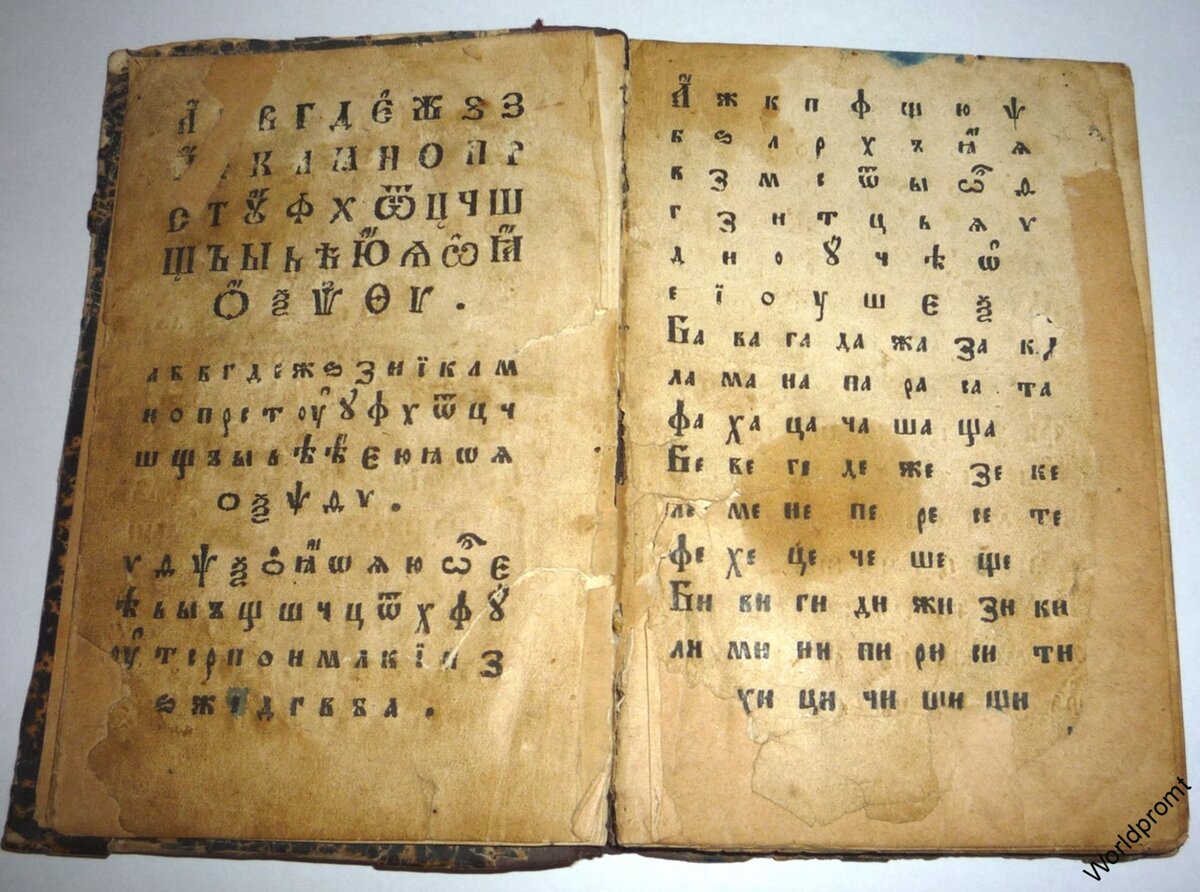 А В Г Д Є Ж Ѕ З
К Л М Н О П Р
С Т Ꙋ Ф Х Ѿ Ц Ч Ш
Щ Ъ Ы Ь Ѣ Ю Ѧ Ѽ Ꙗ
Ѻ Ѯ Ѱ Ѳ Ѵ .
а б в г д е ж ѕ з и ї к л а м
н о п р с т оу ꙋ ф х ѿ ц ч
ш щ ъ ы ь ѣ ѣ є ю ꙗ ѡ ѧ
ѻ ѯ ѱ ѳ ѵ .
ѵ ѳ ѱ ѯ ѻ ꙗ ѡ ѧ ю ѽ є
ѣ ь ы ъ щ ш ч ц ѿ х ф ꙋ
оу т с р п о н м л к ї и з
ѕ ж д г в б а .
А ж к п ф ш ю ѱ
б ѕ л р х ъ ꙗ ѧ
в з м с ѿ ы ѽ ѳ
г з н т ц ь ѧ ѵ
д и о ꙋ ч ѣ ѡ
е ї о у ш є ѯ
Ба ва га да жа за ка
ла ма на па ра са та
фа ха ца ча ша ща
Бе ве ге де же зе ке
ле ме не пе ре се те
фе хе це че ше ще
Би ви ги ди жи зи ки
ли ми ни пи ри си ти
хи ци чи ши щи
Worldpromt